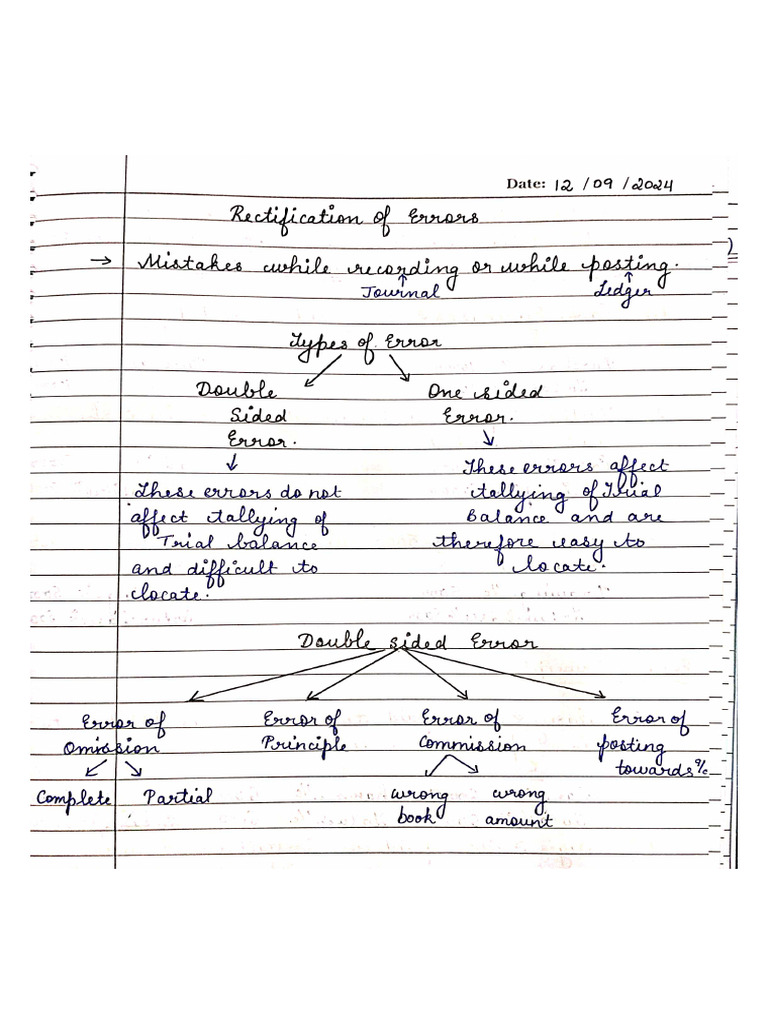 Date: 12/09/2024
Rectification of Errors
→ Mistakes while recording or while posting.
Journal Ledger
Types of Error
Double Sided Error.
One sided Error.
These errors do not
affect tallying of
Trial balance
and difficult to
locate.
These errors affect
tallying of Trial
balance and are
therefore easy to
locate.
Double sided Error
Error of Omission
Error of Principle
Error of Commission
Error of posting towards a/c
Complete Partial
wrong book
wrong amount